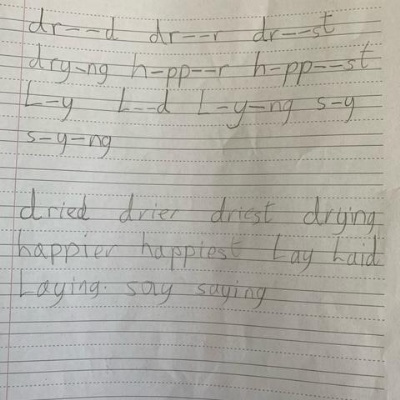 dr--d dr--r dr--st
dry-ng h-pp--r h-pp--st
L-y L--d L-y-ng s-y
s-y-ng
dried drier driest drying
happier happiest Lay Laid
Laying. say saying